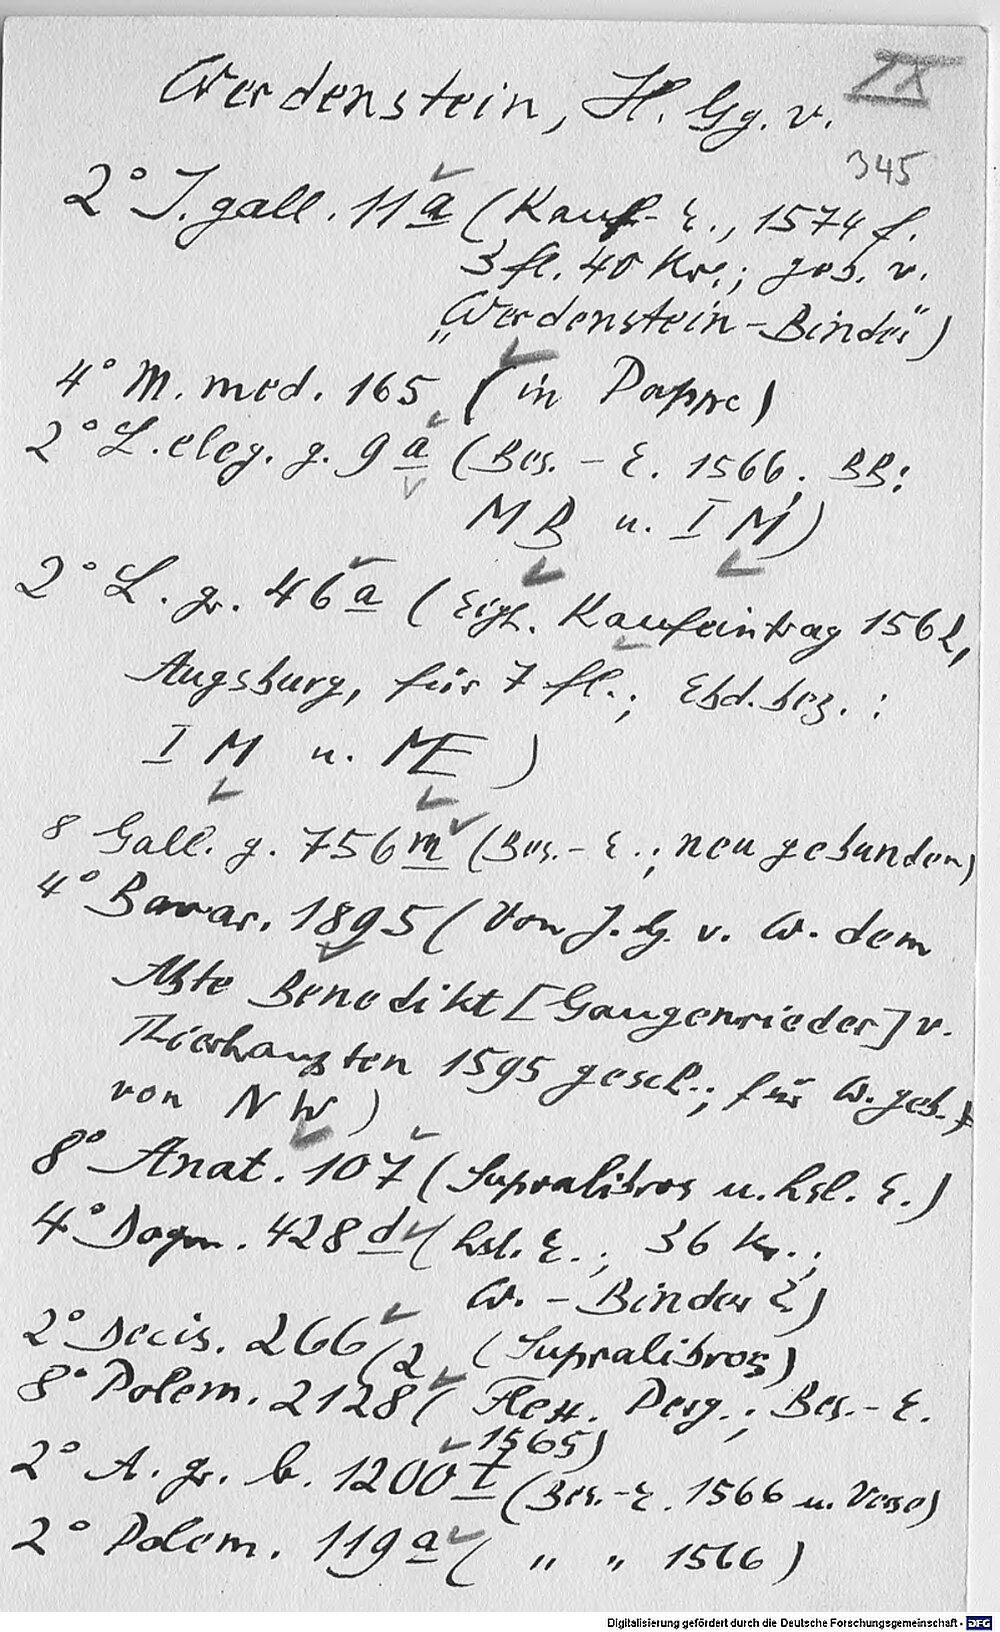 IX
Werdenstein, H. Gg. v.
345
2° J. gall. 11a (Kauf-E., 1574 f.
3 fl. 40 Kr.; geb. v.
„Werdenstein-Binder")
4° M. med. 165 (in Pappe)
2° L. eleg. g. 9a (Bes.-E. 1566; BB:
MB u. IM)
2° L. gr. 46a (eigh. Kaufeintrag 1562,
Augsburg, für 7 fl.; Ebd. bez.:
IM u. ME)
8 Gall. g. 756m (Bes.-E.; neu gebunden)
4° Bavar. 1895 (Von J. G. v. W. dem
Abte Benedikt [Gaugenrieder] v.
Thierhaupten 1595 gesch.; für W. geb.
von NW)
8° Anat. 107 (Supralibros u. hsl. E.)
4° Dogm. 428d (hsl. E.; 36 Kr.;
W.-Binder)
2° Decis. 266/2 (Supralibros)
8° Polem. 2128 (Flex. Perg.; Bes.-E.
1565)
2° A. gr. b. 1200 (Bes.-E. 1566 u. Verse)
2° Polem. 119a ( " " 1566)
Digitalisierung gefördert durch die Deutsche Forschungsgemeinschaft - DFG